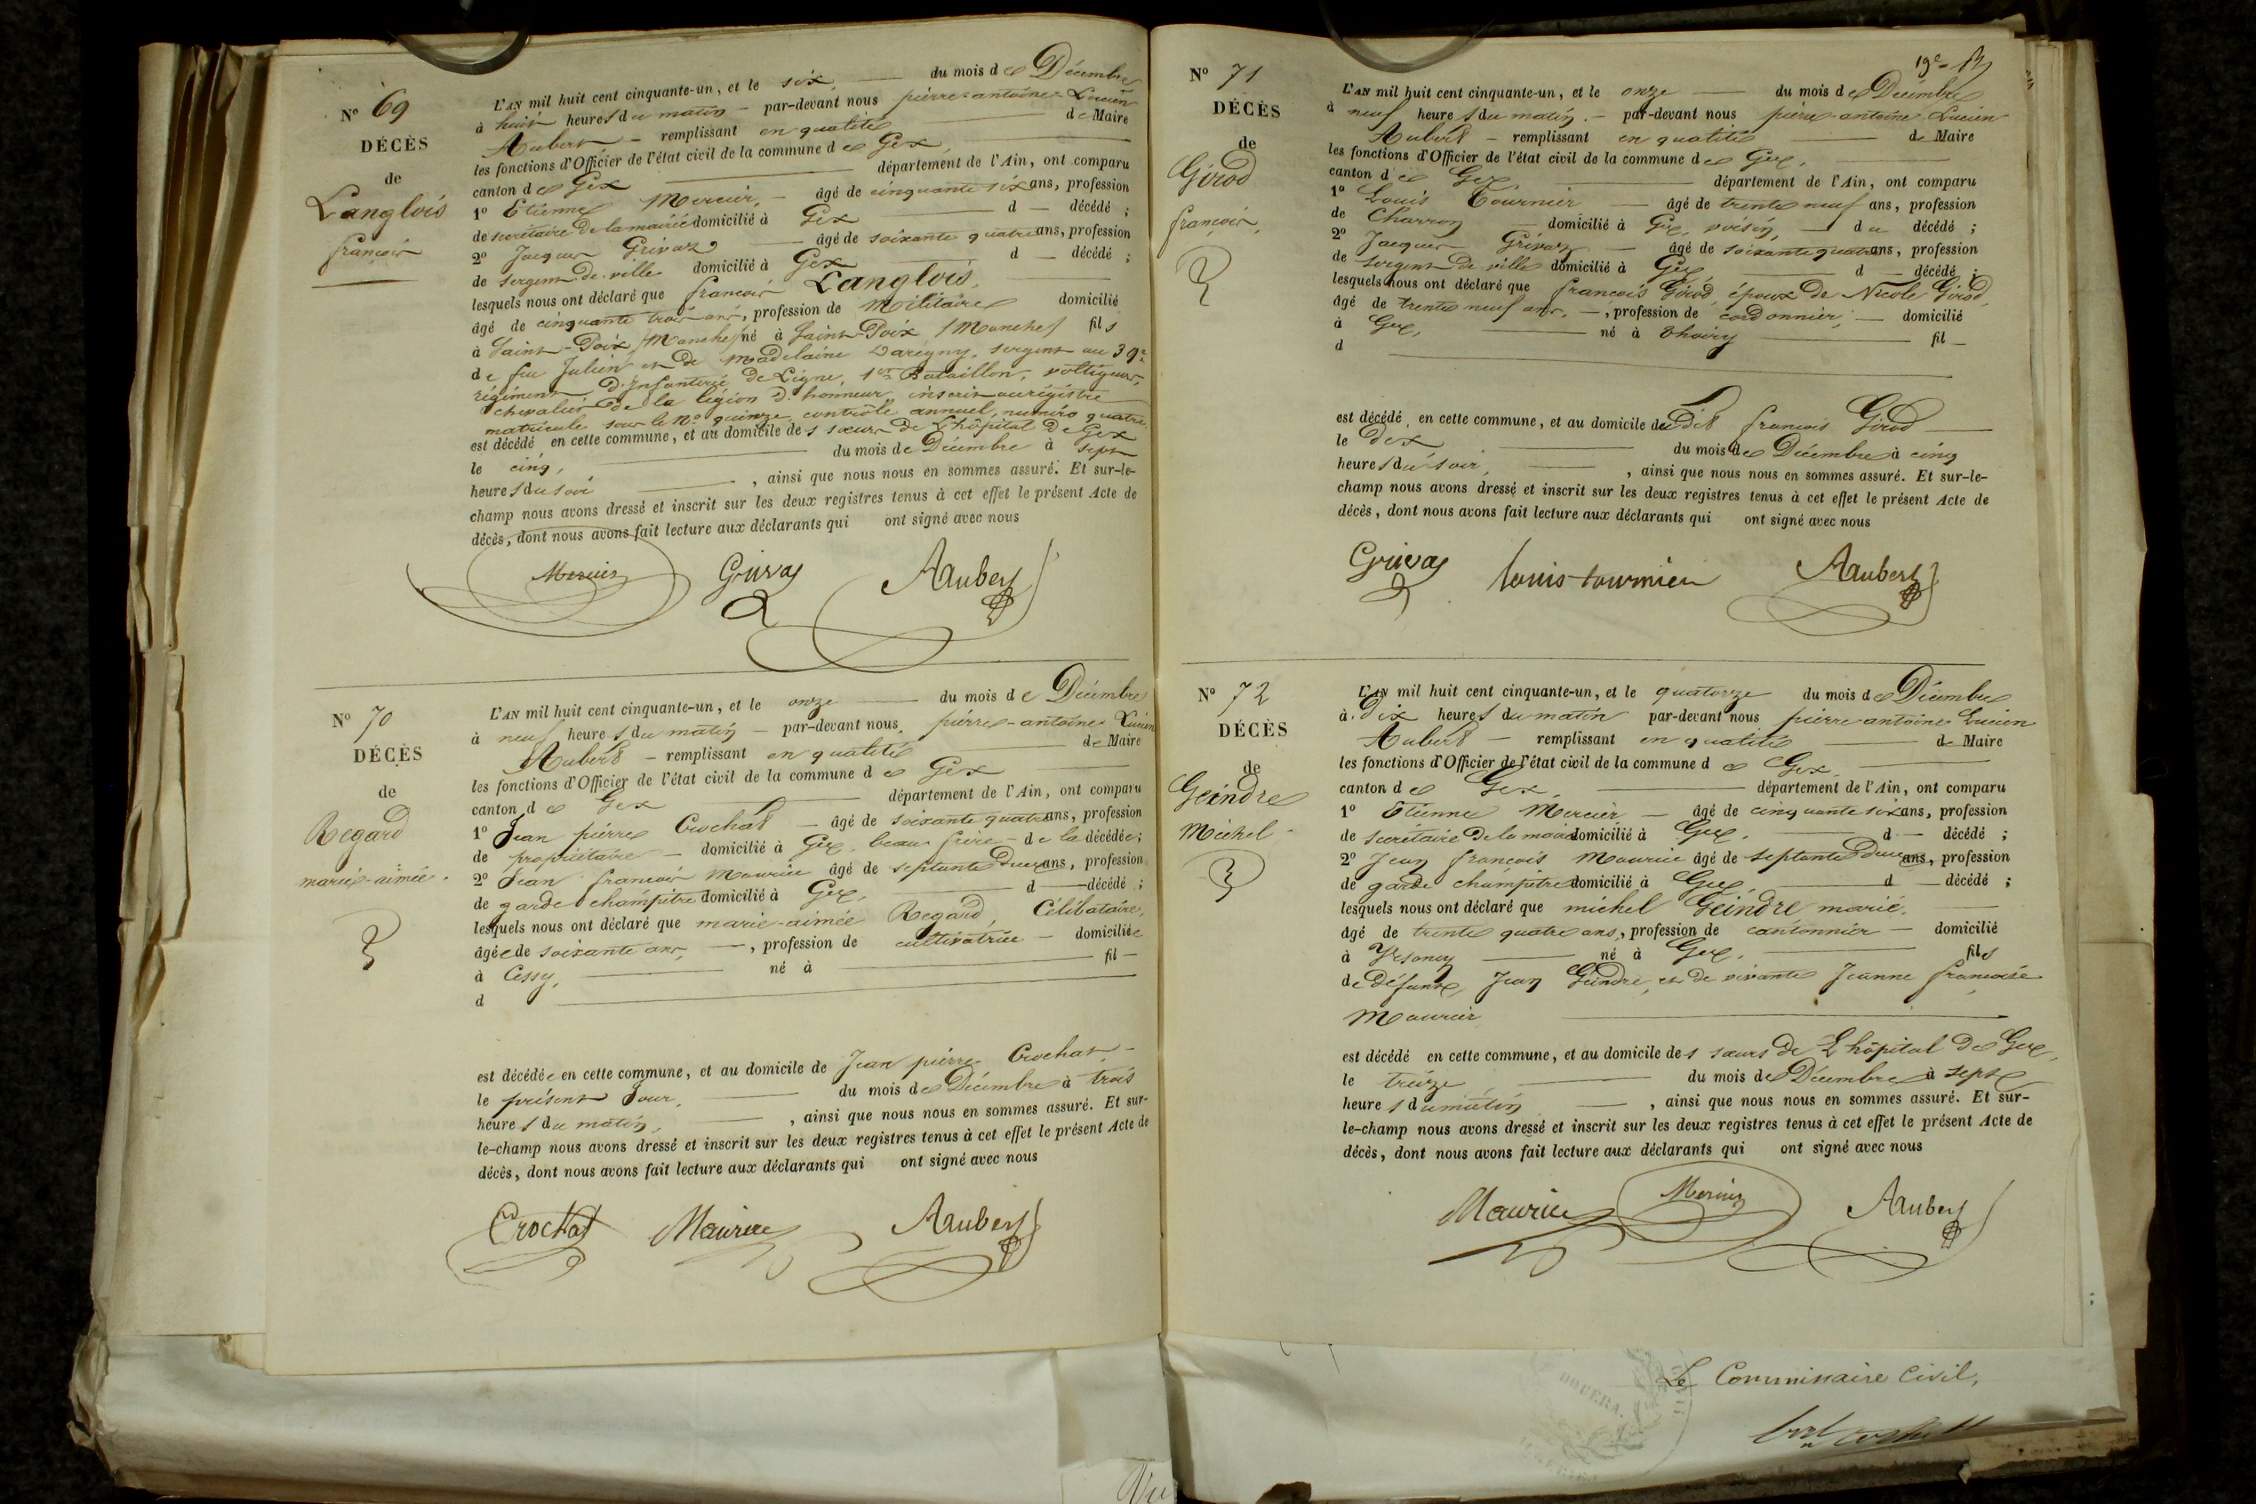 N° 69
DÉCÈS
de
Langlois
françois
L'AN mil huit cent cinquante-un, et le six du mois de Décembre
à huit heures du matin par-devant nous pierre-antoine Lucien
Aubert remplissant en qualité de Maire
les fonctions d'Officier de l'état civil de la commune de Gex,
canton de Gex département de l'Ain, ont comparu
1° Etienne Mercier, âgé de cinquante six ans, profession
de secrétaire de la mairie domicilié à Gex d décédé ;
2° Jacques Grivaz âgé de soixante quatre ans, profession
de sergent de ville domicilié à Gex d décédé ;
lesquels nous ont déclaré que françois Langlois,
âgé de cinquante trois ans, profession de Militaire domicilié
à Saint-Poix (Manche) né à Saint-Poix (Manche) fils
de feu Julien et de Madelaine Darégny, sergent au 39e
régiment D'Infanterie De Ligne, 1er Bataillon, voltigeur,
chevalier de la légion D'honneur, inscrit au régistre
matricule sous le No quinze contrôle annuel, numéro quatre,
est décédé en cette commune, et au domicile des sœurs de L'hôpital De Gex
le cinq, du mois de Décembre à sept
heures du soir , ainsi que nous nous en sommes assuré. Et sur-le-
champ nous avons dressé et inscrit sur les deux registres tenus à cet effet le présent Acte de
décès, dont nous avons fait lecture aux déclarants qui ont signé avec nous
Mercier Grivaz Aubert
N° 70
DÉCÈS
de
Regard
marie-aimée.
L'AN mil huit cent cinquante-un, et le onze du mois de Décembre
à neuf heures du matin par-devant nous, pierre-antoine Lucien
Aubert remplissant en qualité de Maire
les fonctions d'Officier de l'état civil de la commune de Gex
canton de Gex département de l'Ain, ont comparu
1° Jean pierre Crochat âgé de soixante quatre ans, profession
de propriétaire domicilié à Gex, beau frère de la décédée;
2° Jean françois Maurice âgé de septante Deux ans, profession
de garde champêtre domicilié à Gex, d décédé ;
lesquels nous ont déclaré que marie-aimée Regard, Célibataire,
âgée de soixante ans, , profession de cultivatrice domiciliée
à Cessy, né à fil
d
est décédée en cette commune, et au domicile de Jean pierre Crochat
le présent Jour, du mois de Décembre à trois
heures du matin, , ainsi que nous nous en sommes assuré. Et sur-
le-champ nous avons dressé et inscrit sur les deux registres tenus à cet effet le présent Acte de
décès, dont nous avons fait lecture aux déclarants qui ont signé avec nous
Crochat Maurice Aubert
N° 71
DÉCÈS
de
Girod
françois,
19e
L'AN mil huit cent cinquante-un, et le onze du mois de Décembre
à neuf heures du matin. par-devant nous pierre antoine Lucien
Aubert remplissant en qualité de Maire
les fonctions d'Officier de l'état civil de la commune de Gex,
canton de Gex département de l'Ain, ont comparu
1° Louis Tournier âgé de trente neuf ans, profession
de Charron domicilié à Gex, voisin, du décédé ;
2° Jacques Grivaz âgé de soixante quatre ans, profession
de sergent de ville domicilié à Gex, d décédé ;
lesquels nous ont déclaré que françois Girod, époux De Nicole Girod,
âgé de trente neuf ans, , profession de cordonnier, domicilié
à Gex, né à Thoiry fil
d
est décédé en cette commune, et au domicile dudit françois Girod
le dix du mois de Décembre à cinq
heures du soir, , ainsi que nous nous en sommes assuré. Et sur-le-
champ nous avons dressé et inscrit sur les deux registres tenus à cet effet le présent Acte de
décès, dont nous avons fait lecture aux déclarants qui ont signé avec nous
Grivaz louis tournier Aubert
N° 72
DÉCÈS
de
Geindre
Michel
L'AN mil huit cent cinquante-un, et le quatorze du mois de Décembre
à Dix heures du matin par-devant nous pierre antoine Lucien
Aubert remplissant en qualité de Maire
les fonctions d'Officier de l'état civil de la commune de Gex
canton de Gex, département de l'Ain, ont comparu
1° Etienne Mercier âgé de cinquante six ans, profession
de secrétaire De la mairie domicilié à Gex, d décédé ;
2° Jean françois Maurice âgé de septante Deux ans, profession
de garde champêtre domicilié à Gex, d décédé ;
lesquels nous ont déclaré que michel Geindre marié,
âgé de trente quatre ans, profession de cantonnier domicilié
à Vesancy né à Gex, fils
de défunt Jean Geindre, et de vivante Jeanne françoise
Mourier
est décédé en cette commune, et au domicile des sœurs de L'hôpital De Gex,
le treize du mois de Décembre à sept
heures du matin , ainsi que nous nous en sommes assuré. Et sur-
le-champ nous avons dressé et inscrit sur les deux registres tenus à cet effet le présent Acte de
décès, dont nous avons fait lecture aux déclarants qui ont signé avec nous
Maurice Mercier Aubert
Le Commissaire Civil,
Vu